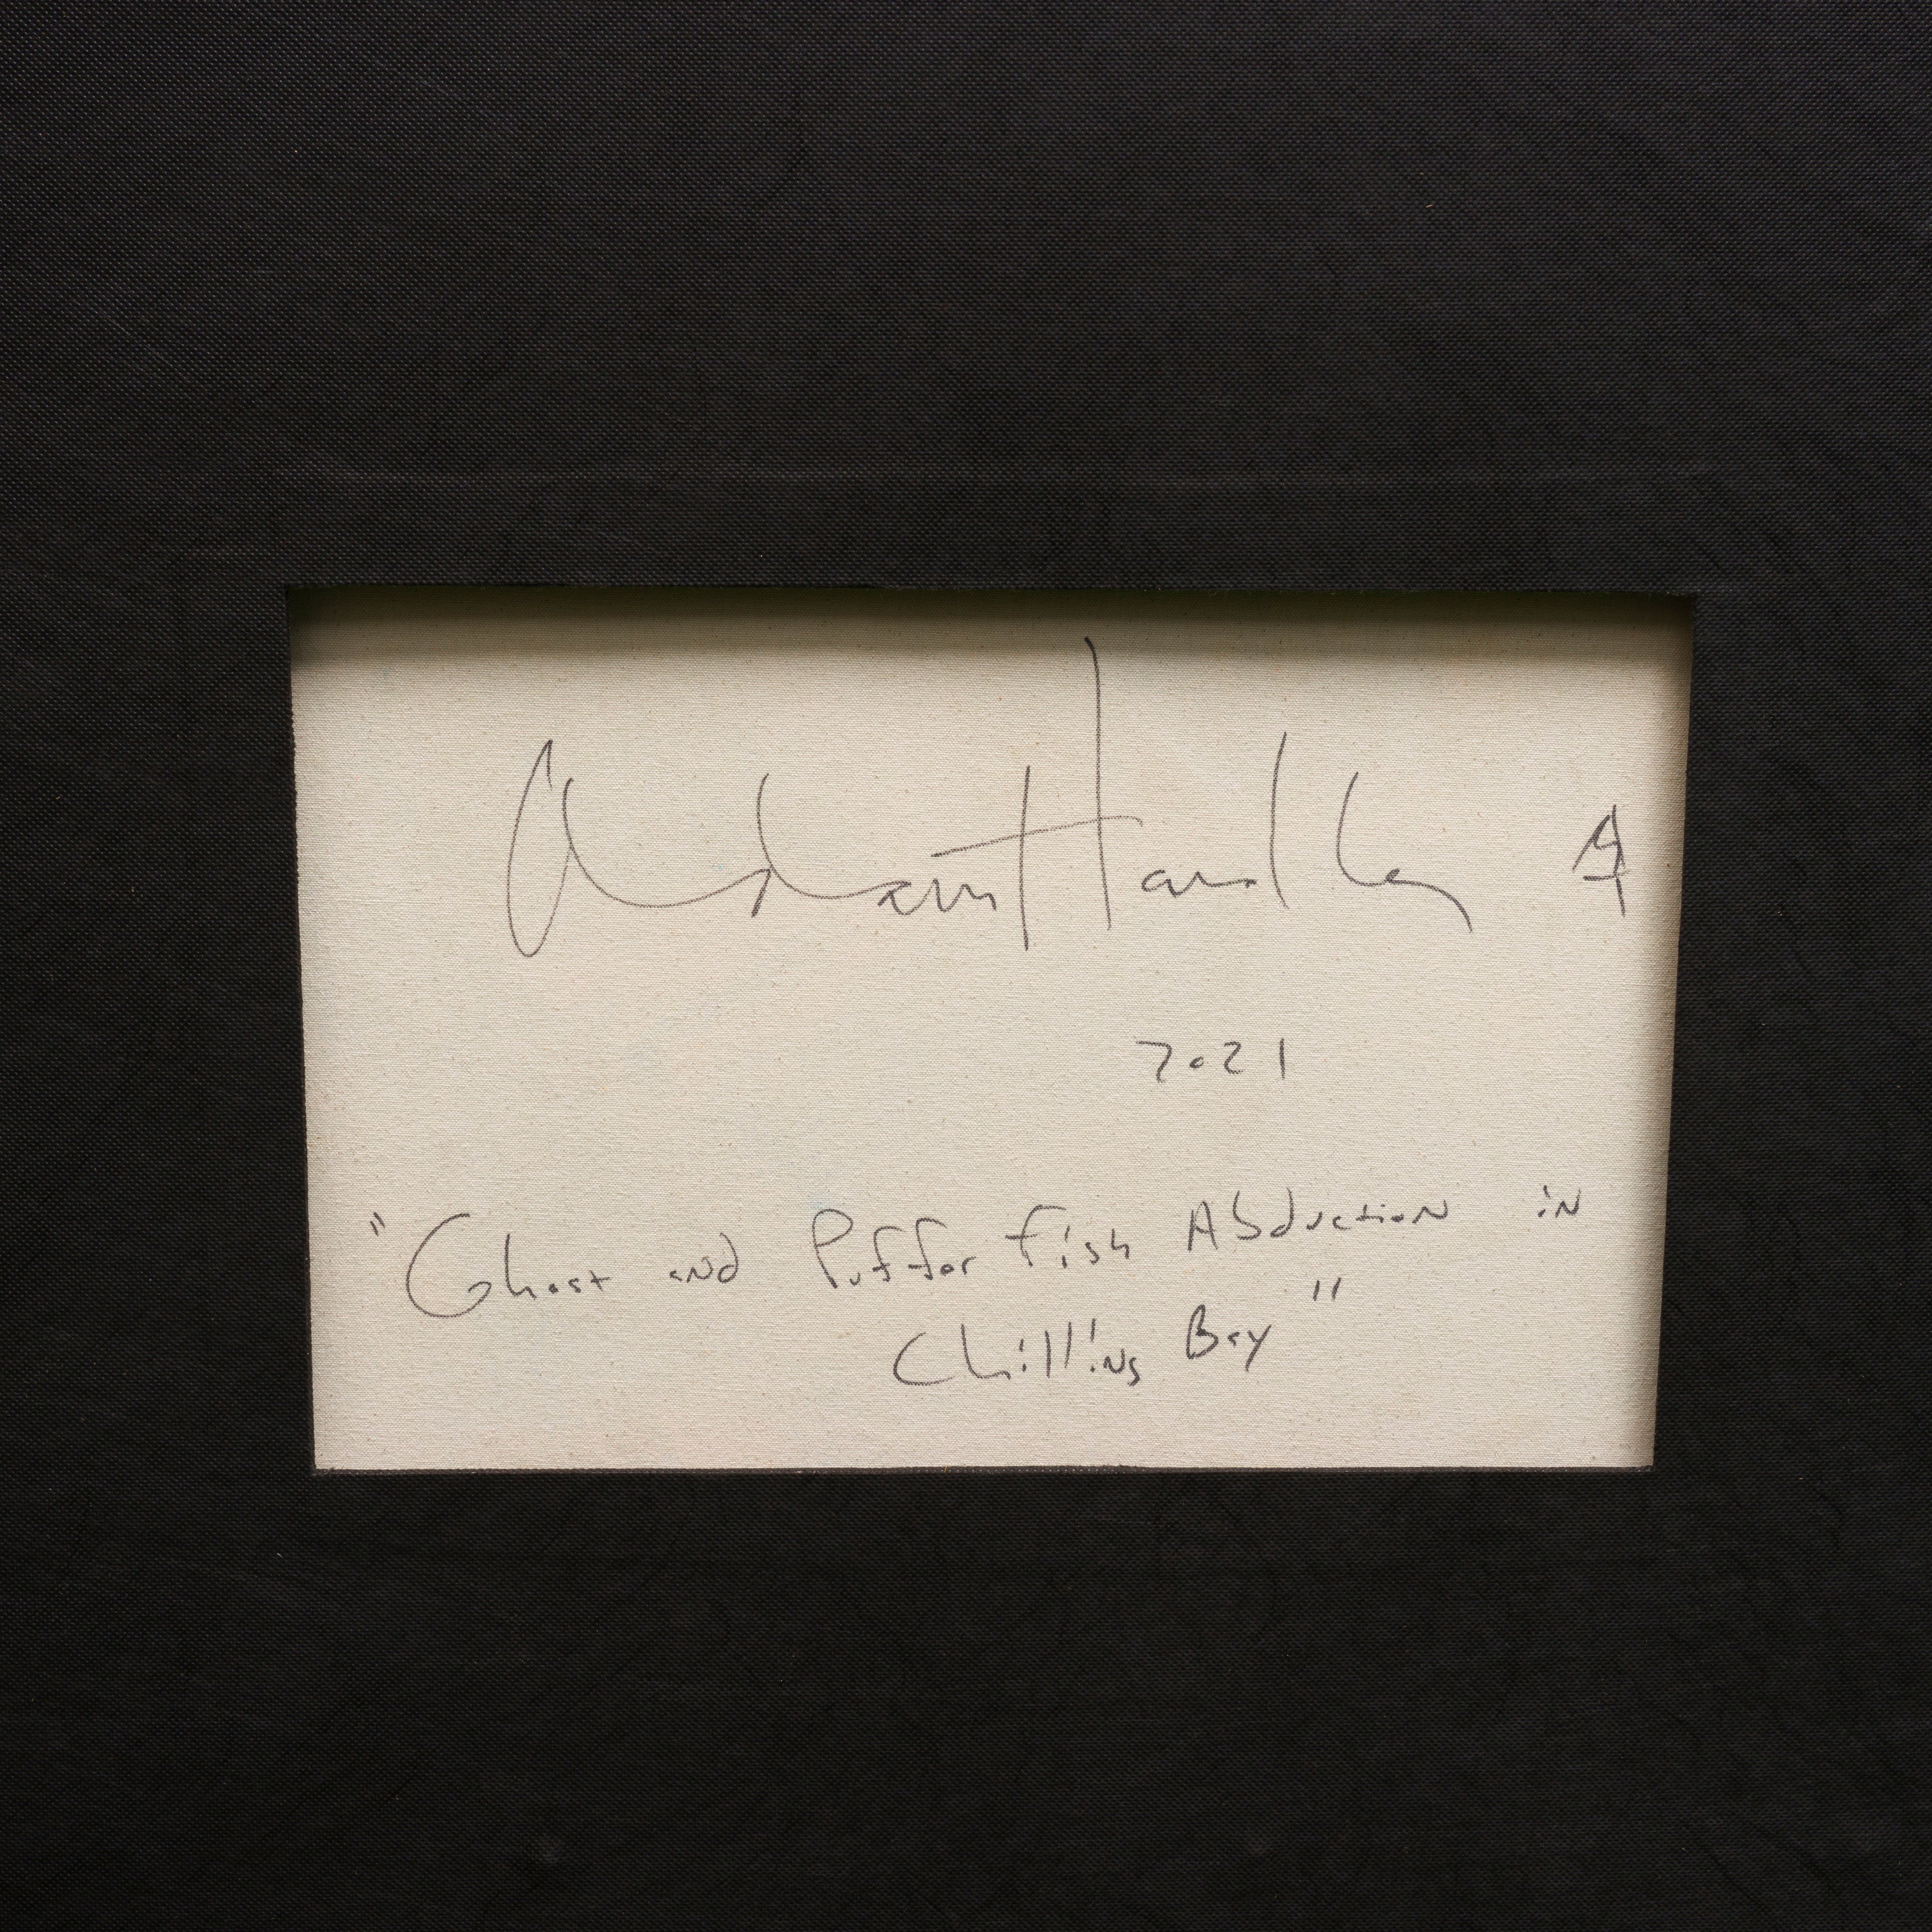 Adam Handler
2021
"Ghost and Puffer Fish Abduction in
Chilling Bay"